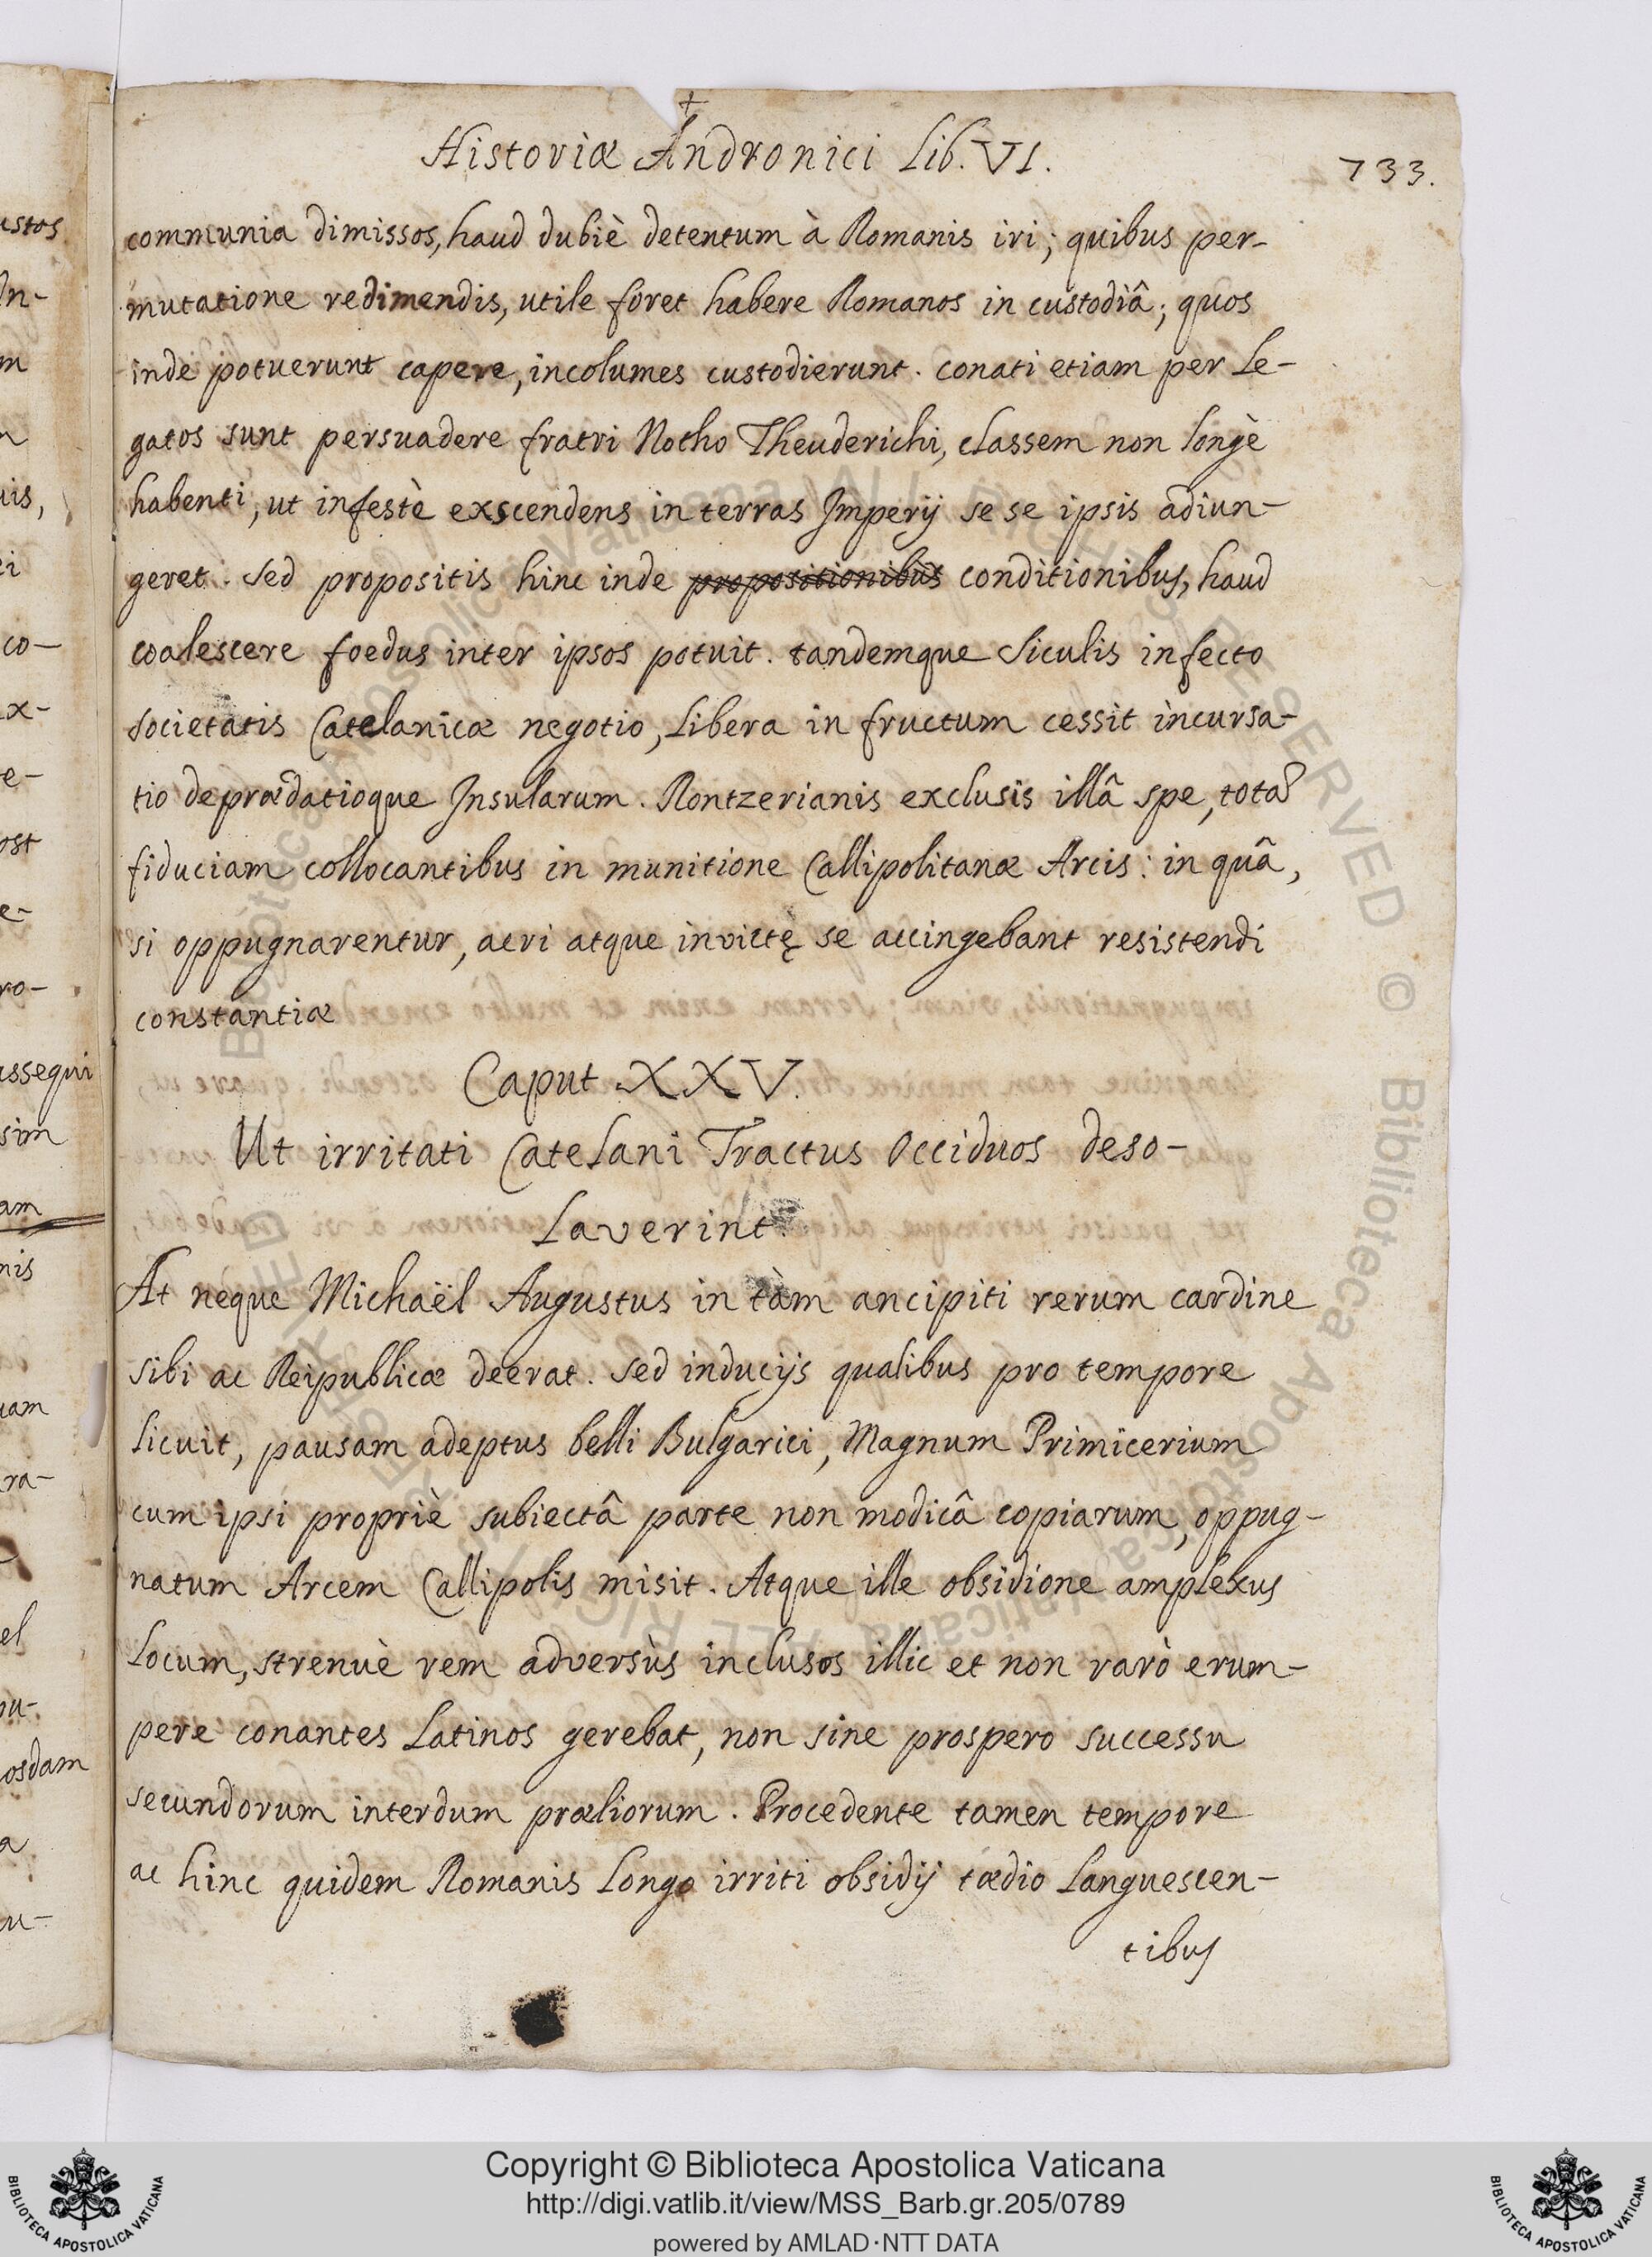 Historiæ Andronici Lib. VI.
733.
communia dimissos, haud dubiè detentum à Romanis iri; quibus per-
mutatione redimendis, utile foret habere Romanos in custodiâ; quos
inde potuerunt capere, incolumes custodierunt. conati etiam per Le-
gatos sunt persuadere fratri Notho Theuderichi, classem non longè
habenti, ut infestè exscendens in terras Imperij se se ipsis adiun-
geret. Sed propositis hinc inde propositionibus conditionibus, haud
coalescere foedus inter ipsos potuit. tandemque Siculis infecto
societatis Catelanicæ negotio, Libera in fructum cessit incursa-
tio deprædatioque Insularum. Rontzerianis exclusis illâ spe, totã
fiduciam collocantibus in munitione Callipolitanæ Arcis: in quâ,
si oppugnarentur, acri atque invictę se accingebant resistendi
constantiæ
Caput XXV.
Ut irritati Catelani Tractus Occiduos deso-
laverint.
At neque Michaël Augustus in tàm ancipiti rerum cardine
sibi ac Reipublicæ deerat. Sed inducijs qualibus pro tempore
licuit, pausam adeptus belli Bulgarici, Magnum Primicerium
cum ipsi propriè subiectâ parte non modicâ copiarum, oppug-
natum Arcem Callipolis misit. Atque ille obsidione amplexus
Locum, strenuè rem adversùs inclusos illic et non rarò erum-
pere conantes Latinos gerebat, non sine prospero successu
secundorum interdum præliorum. Procedente tamen tempore
ac hinc quidem Romanis Longo irriti obsidij tædio Languescen-
tibus
Copyright © Biblioteca Apostolica Vaticana
http://digi.vatlib.it/view/MSS_Barb.gr.205/0789
powered by AMLAD·NTT DATA
BIBLIOTECA APOSTOLICA VATICANA
BIBLIOTECA APOSTOLICA VATICANA